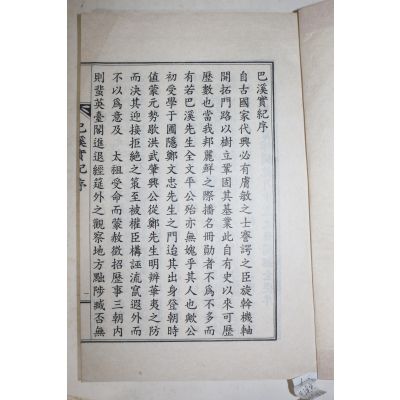 巴溪實紀序
自古國家代興必有膚敏之士謇諤之臣旋斡機軸
開拓門路以樹立鞏固其基業此自有史以來可歷
歷數也當我邦麗鮮之際播名冊勛者不爲不多而
有若巴溪先生全文平公殆亦無媿乎其人也歟公
初受學于圃隱鄭文忠先生之門迨其出身登朝時
值蒙元勢歇洪武肇興公從鄭先生明辨華夷之防
而決其迎接拒絶之策至被權臣構誣流竄遐外而
不以爲意及　太祖受命而蒙赦徵招歷事三朝內
則蜚英臺閣進退經筵外之觀察地方黜陟臧否無
巴溪實紀序
一